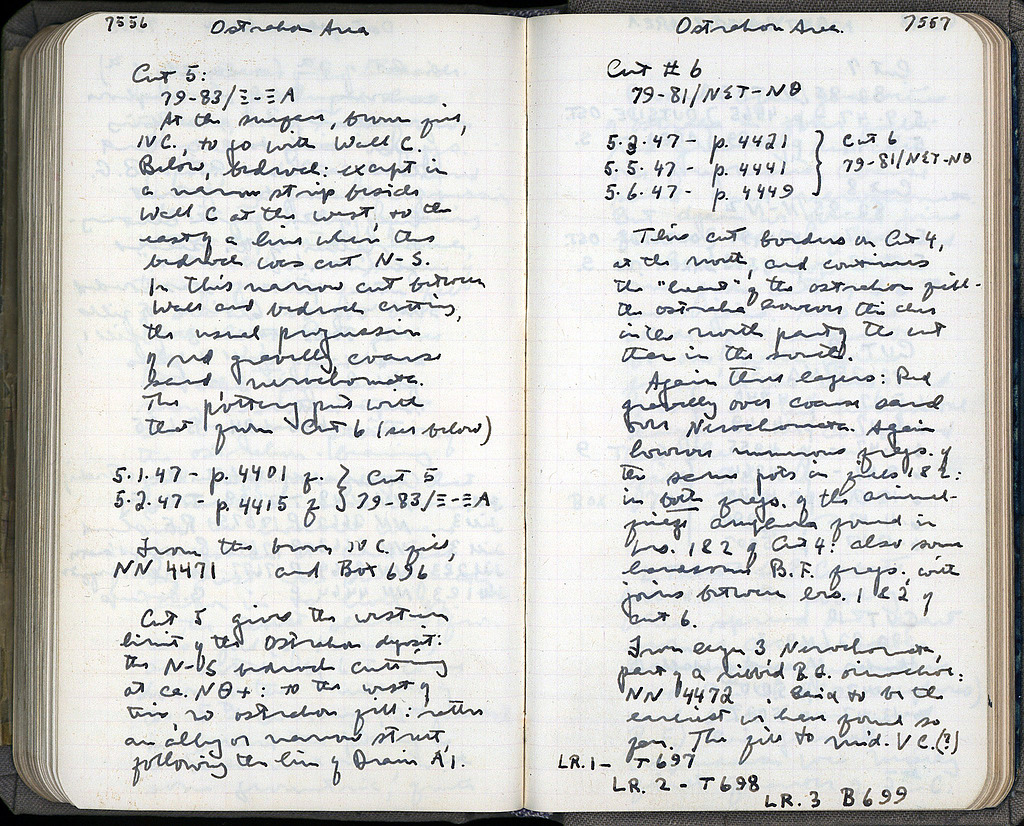 7556 Ostrakon Area
Cut 5:
79-83/Ξ-ΞA
At the surface, brown fill,
IV C., to go with Wall C.
Below, bedrock: except in
a narrow strip beside
Wall C at the west, to the
east of a line where the
bedrock was cut N-S.
In this narrow cut between
Wall and bedrock cutting,
the usual progression
of red gravelly coarse
sand
The pottery
that from Cut 6 (see below)
5.1.47 - p. 4401 f. } Cut 5
5.2.47 - p. 4415 f } 79-83/Ξ-ΞA
From the brown IV C. fill,
NN 4471 and Box 696
Cut 5 gives the western
limit of the Ostrakon deposit:
the N-S bedrock cutting
at ca. NΘ+: to the west of
this, no ostrakon fill: rather
an alley or narrow street,
following the line of Drain A'1.
7557
Ostrakon Area
Cut # 6
79-81/NΣT-NΘ
5.2.47 - p. 4421 } Cut 6
5.5.47 - p. 4441 } 79-81/NΣT-NΘ
5.6.47 - p. 4449
This cut borders on Cut 4,
at the north, and continues
the "heart" of the ostrakon fill -
the ostraka however thicker
in the north part of the cut
than in the south.
Again three layers: Red
gravelly over coarse sand
over Nerochomata. Again
however numerous frags. of
the same pots in fills 1 & 2:
in both frags. of the
amphora found in
Lrs. 1 & 2 of Cut 4: also some
handsome B.F. frags. with
joins between Lrs. 1 & 2 of
Cut 6.
From layer 3 Nerochomata,
part of a ribbed B.G. oinochoe:
NN 4472 Said to be the
earliest in here found so
far. The fill to mid. V C.(?)
LR. 1 - T 697
LR. 2 - T 698
LR. 3 B 699